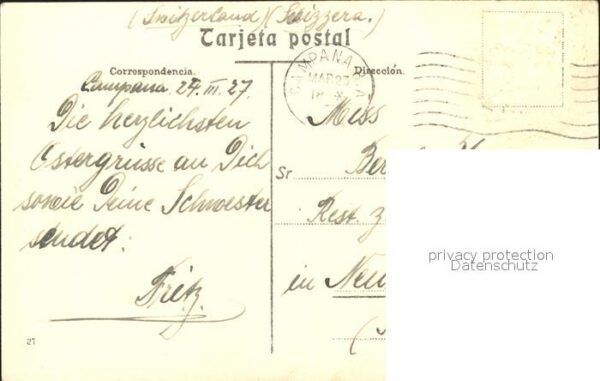 (Switzerland) (Suizzera.)
Tarjeta postal
Correspondencia.
Dirección.
CAMPANA
MAR 23
Campana 24. III. 27.
Die herzlichsten
Ostergrüsse an Dich
sowie Deine Schwester
sendet:
Fritz.
Miss
Sr
Rest z
in Neu
27
privacy protection
Datenschutz